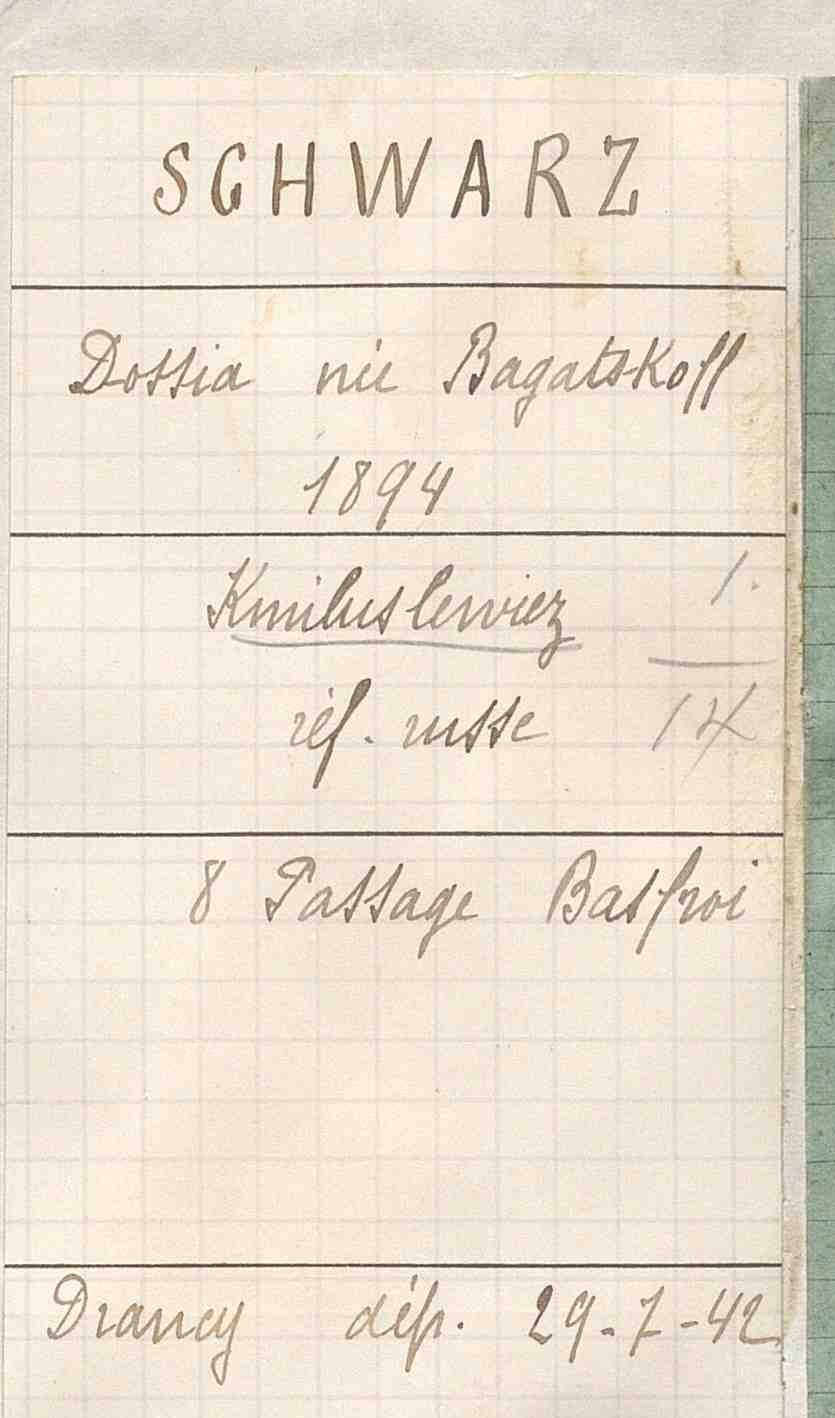 SCHWARZ
Dossia née Bagatskoff
1894
Kmiluslewiez 1.
réf. russe 14
8 Passage Basfroi
Drancy dép. 29-7-42